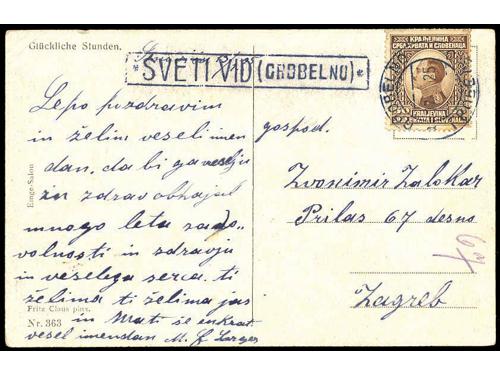 Glückliche Stunden.
* SVETI VID (GROBELNO) *
КРАЉЕВИНА
СРБА, ХРВАТА И СЛОВЕНАЦА
KRALJEVINA
SRBA, HRVATA I SLOVENACA
GROBELNO
Lepo pozdravim
in želim veseli imen
dan, da bi ga veselju
in zdrav obhajal
mnogo leta zado„
volnosti in zdravju
in veselega serca. ti
želima ti želima jas
in mati še enkrat
vesel imendan M. J.
gospod.
Zvonimir Zalokar
Prilas 67 desno
Zagreb
67
Emge-Salon
Fritz Claus pinx.
Nr. 363